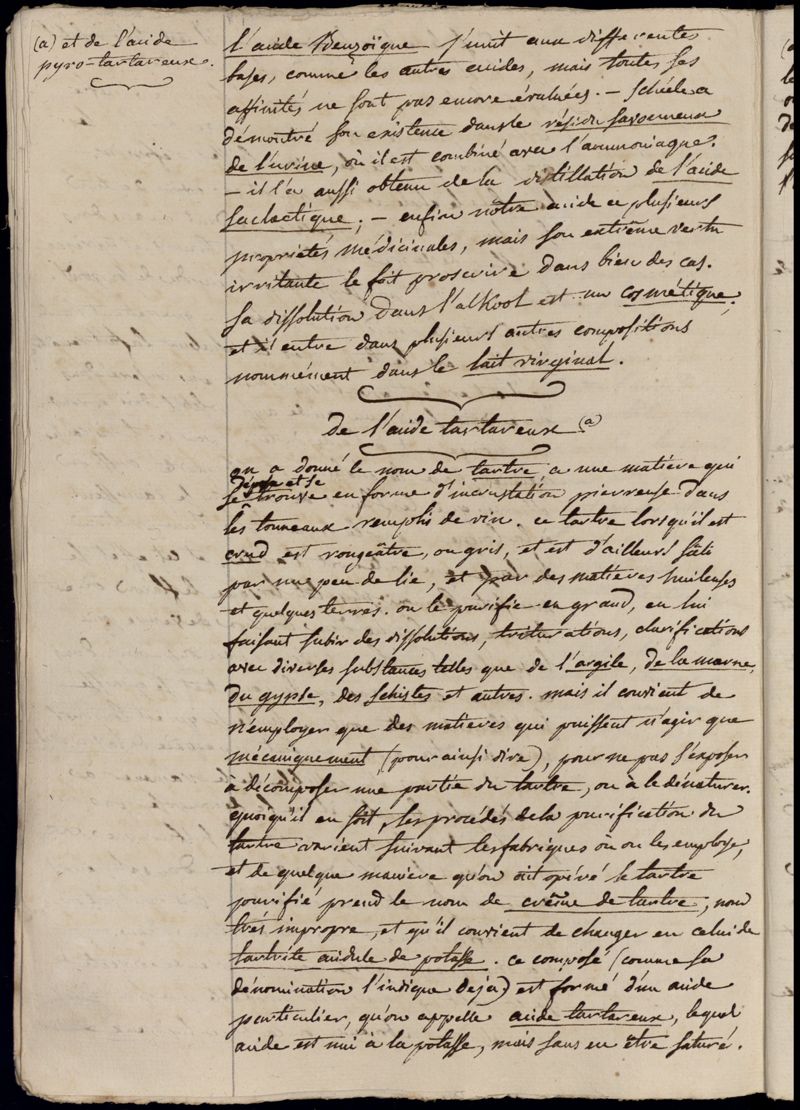 (a) et de l'acide
pyro-tartareux.
l'acide Benzoïque s'unit aux differentes
bases, comme les autres acides, mais toutes ses
affinités ne sont pas encore évaluées. – Schéele a
démontré son existence dans le résidu savoneux
de l'urine, où il est combiné avec l'ammoniaque.
– il l'a aussi obtenu de la distillation de l'acide
saclactique; – enfin nôtre acide a plusieurs
propriétés médicinales, mais son extrême vertu
irritante le fait proscrire dans bien des cas.
sa dissolution dans l'alkool est un cosmétique,
et il entre dans plusieurs autres compositions
nommément dans le lait virginal.
De l'acide tartareux (a)
on a donné le nom de tartre a une matiere qui
se trouve en forme d'incrustation pierreuse dans
les tonneaux remplis de vin. ce tartre lorsqu'il est
crud est rougeâtre, ou gris, et est d'ailleurs sali
par un peu de lie, et par des matieres huileuses
et quelques terres. on le purifie en grand, en lui
faisant subir des dissolutions, triturations, clarifications
avec diverses substances telles que de l'argile, de la marne,
du gypse, des schistes et autres. mais il convient de
n'employer que des matieres qui puissent n'agir que
mécaniquement (pour ainsi dire), pour ne pas s'exposer
à décomposer une partie du tartre, ou à le dénaturer.
quoiqu'il en soit, les procédés de la purification du
tartre varient suivant les fabriques où on les employe,
et de quelque maniere qu'on ait opéré le tartre
purifié prend le nom de crême de tartre, nom
très impropre, et qu'il convient de changer en celui de
tartrite acidule de potasse. ce composé (comme sa
dénomination l'indique Deja) est formé d'un acide
particulier, qu'on appelle acide tartareux, lequel
acide est uni à la potasse, mais sans en être saturé.